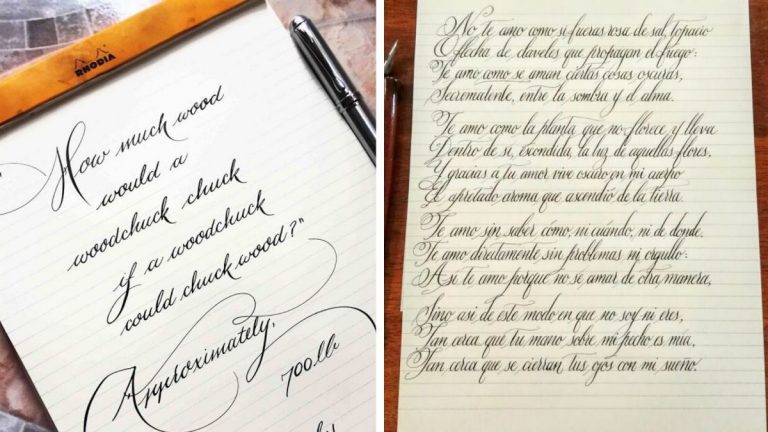 RHODIA
How much wood
would a
woodchuck chuck
if a woodchuck
could chuck wood?"
Approximately,
700lb
No te amo como si fueras rosa de sal, topacio
O flecha de claveles que propagan el fuego:
Te amo como se aman ciertas cosas oscuras,
entre la sombra y el alma.
Te amo como la planta que no florece y lleva
Dentro de si, escondida, la luz de aquellas flores,
Y gracias á tu amor vive oscuro en mi cuerpo
El apretado aroma que ascendió de la tierra.
Te amo sin saber cómo, ni cuándo, ni de donde.
Te amo directamente sin problemas ni orgullo:
Así te amo porque no se amar de otra manera,
Sino así de este modo en que no soy ni eres,
Tan cerca que tu mano sobre mi pecho es mía,
Tan cerca que se cierran tus ojos con mi sueño.